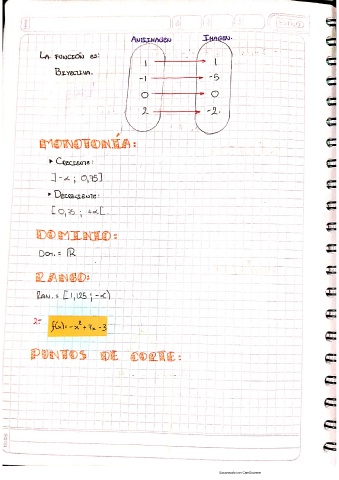 ANTIIMAGEN IMAGEN.
LA FUNCIÓN ES:
BIYECTIVA.
1 1
-1 -5
0 0
2 -2.
MONOTONÍA:
▸ CRECIENTE:
]-∝ ; 0,75]
• DECRECIENTE:
[0,75 ; +∝[
DOMINIO:
DOM. = ℝ
RANGO:
RAN. = [1,125 ; -∝)
2-
f(x) = -x² + 4x - 3
PUNTOS DE CORTE: